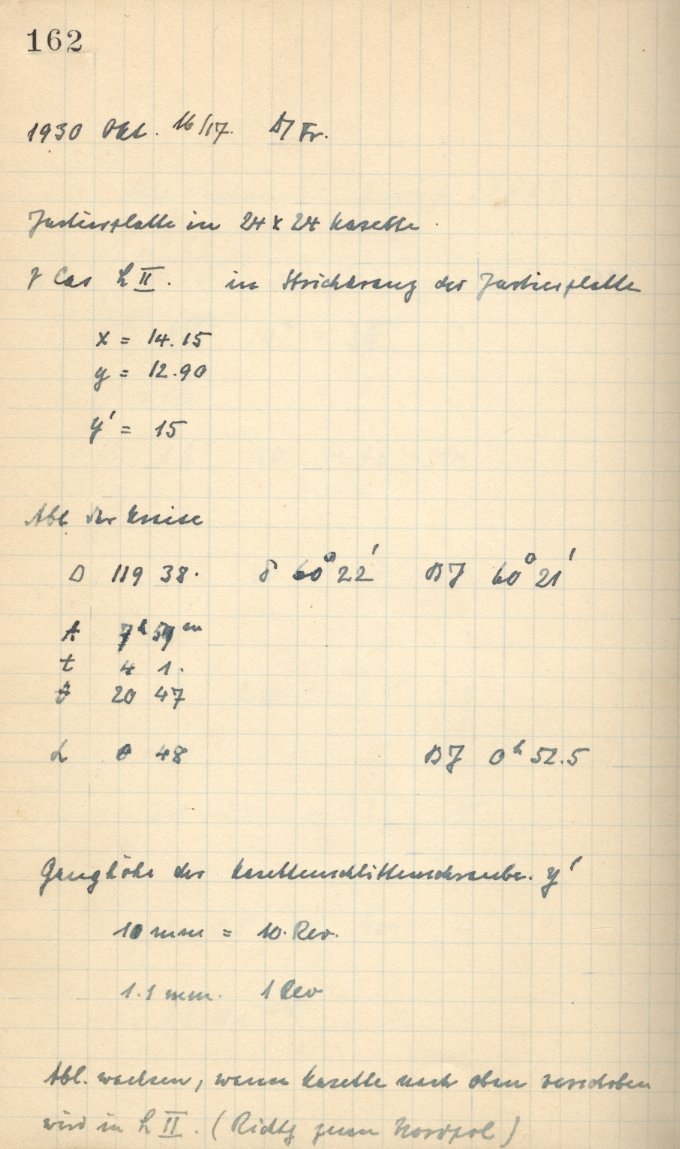 162
1930 Okt. 16/17. D/Fr.
Justierplatte in 24 x 24 Kasette.
γ Cas h II. in Strichkreuz der Justierplatte
x = 14.15
y = 12.90
y' = 15
Abl der Kreise
D 119 38. δ 60° 22' BJ 60° 21'
A 7h 59m
t 4 1.
ϑ 20 47
α 0 48 BJ 0h 52.5
Ganghöhe der Kasettenschlittenschraube. y'
10 mm = 10. Rev.
1.1 mm. 1 Rev
Abl. wachsen, wenn Kasette nach oben verschoben
wird in h II. (Richtg zum Nordpol)